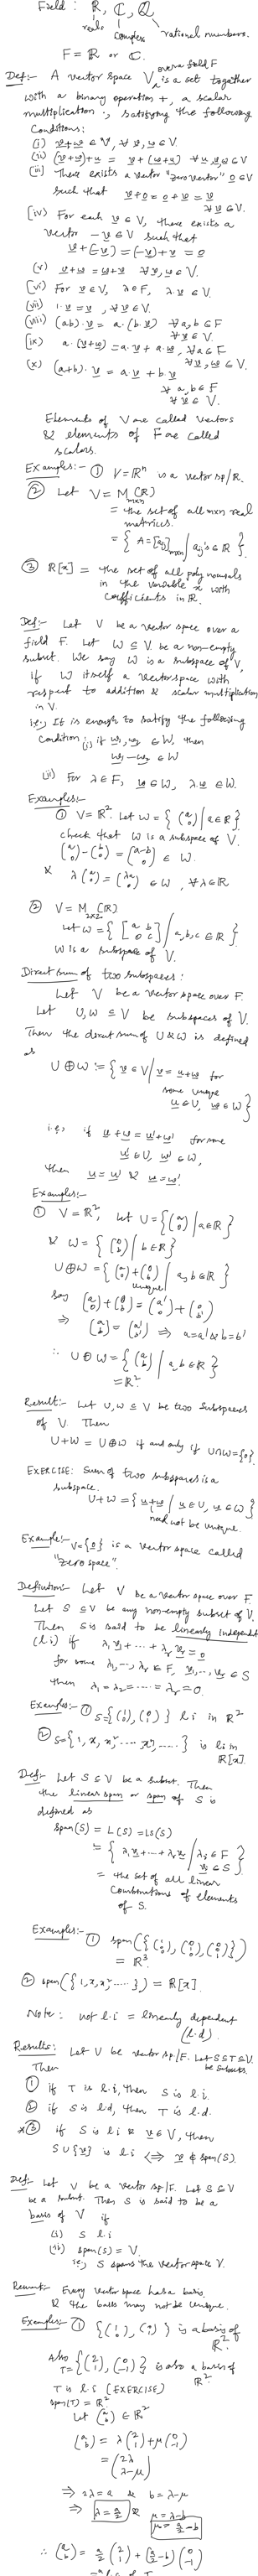 Field : ℝ, ℂ, ℚ
reals complex rational numbers.
F = ℝ or ℂ.
Def:- A vector space V over a field F is a set together
with a binary operation +, a scalar
multiplication ·, satisfying the following
Conditions:
(i) v+w ∈ V, ∀ v, w ∈ V.
(ii) (v+w)+u = v+(w+u) ∀ u,v,w ∈ V
(iii) There exists a vector "zero vector" 0 ∈ V
such that v+0 = 0+v = v
∀ v ∈ V.
(iv) For each v ∈ V, there exists a
vector -v ∈ V such that
v+(-v) = (-v)+v = 0
(v) v+w = w+v ∀ v,w ∈ V.
(vi) For v ∈ V, λ ∈ F, λ.v ∈ V.
(vii) 1.v = v, ∀ v ∈ V.
(viii) (ab).v = a.(b.v) ∀ a,b ∈ F
∀ v ∈ V.
(ix) a.(v+w) = a.v + a.w, ∀ a ∈ F
∀ v,w ∈ V.
(x) (a+b).v = a.v + b.v
∀ a,b ∈ F
∀ v ∈ V.
Elements of V are called vectors
& elements of F are called
scalars.
Examples:- ① V = ℝⁿ is a vector sp/ℝ.
② Let V = M_{m×n}(ℝ)
= the set of all m×n real
matrices.
= { A = [a_ij]_{m×n} / a_ij's ∈ ℝ }.
③ ℝ[x] = the set of all polynomials
in the variable x with
coefficients in ℝ.
Def:- Let V be a vector space over a
field F. Let W ⊆ V be a non-empty
subset. We say W is a subspace of V,
if W itself a vector space with
respect to addition & scalar multiplication
in V.
i.e., It is enough to satisfy the following
Condition: (i) if w₁, w₂ ∈ W, then
w₁-w₂ ∈ W
(ii) For λ ∈ F, w ∈ W, λ.w ∈ W.
Examples:-
① V = ℝ². Let W = { (a 0) / a ∈ ℝ }.
check that W is a subspace of V.
(a 0) - (b 0) = (a-b 0) ∈ W.
& λ(a 0) = (λa 0) ∈ W, ∀ λ ∈ ℝ
② V = M_{2×2}(ℝ)
Let W = { [a b 0 c] / a,b,c ∈ ℝ }
W is a subspace of V.
Direct sum of two subspaces:
Let V be a vector space over F.
Let U, W ⊆ V be subspaces of V.
Then the direct sum of U & W is defined
as
U ⊕ W := { v ∈ V / v = u+w for
some unique
u ∈ U, w ∈ W }
i.e., if u+w = u'+w' for some
u' ∈ U, w' ∈ W,
then u = u' & w = w'.
Examples:-
① V = ℝ², Let U = { (a 0) / a ∈ ℝ }
& W = { (0 b) / b ∈ ℝ }
U ⊕ W = { (a 0) + (0 b) / a,b ∈ ℝ }
unique
say (a 0) + (0 b) = (a' 0) + (0 b')
⇒ (a b) = (a' b') ⇒ a = a' & b = b'
∴ U ⊕ W = { (a b) / a,b ∈ ℝ }
= ℝ².
Result:- Let U, W ⊆ V be two subspaces
of V. Then
U+W = U⊕W if and only if U∩W = {0}.
EXERCISE: Sum of two subspaces is a
subspace.
U+W = { u+w / u ∈ U, w ∈ W }
need not be unique.
Example:- V = {0} is a vector space called
"zero space".
Definition:- Let V be a vector space over F.
Let S ⊆ V be any non-empty subset of V.
Then S is said to be linearly independent
(l.i) if λ₁v₁ + ... + λᵣvᵣ = 0
for some λ₁, ..., λᵣ ∈ F, v₁, ..., vᵣ ∈ S
then λ₁ = λ₂ = ...... = λᵣ = 0.
Examples:- ① S = { (1 0), (0 1) } l.i in ℝ²
② S = { 1, x, x², ..... xⁿ, ..... } is l.i in
ℝ[x].
Def:- Let S ⊆ V be a subset. Then
the linear span or span of S is
defined as
span(S) = L(S) = LS(S)
= { λ₁v₁ + ... + λᵣvᵣ / λⱼ ∈ F vⱼ ∈ S }
= the set of all linear
combinations of elements
of S.
Examples:- ① span({ (1 0 0), (0 1 0), (0 0 1) })
= ℝ³.
② span({1, x, x², .....}) = ℝ[x].
Note: not l.i = linearly dependent
(l.d).
Results: Let V be vector sp/F. Let S ⊆ T ⊆ V.
be subsets.
Then
① If T is l.i, then S is l.i.
② if S is l.d, then T is l.d.
*③ if S is l.i & v ∈ V, then
S ∪ {v} is l.i ⟺ v ∉ span(S).
Def:- Let V be a vector sp/F. Let S ⊆ V
be a subset. Then S is said to be a
basis of V if
(i) S l.i
(ii) span(S) = V,
i.e., S spans the vector space V.
Remark:- Every vector space has a basis.
& the basis may not be unique.
Examples:- ① { (1 0), (0 1) } is a basis of
ℝ².
Also T = { (2 1), (0 -1) } is also a basis of
ℝ².
T is l.i (EXERCISE)
span(T) = ℝ²
Let (a b) ∈ ℝ²
(a b) = λ(2 1) + μ(0 -1)
= (2λ λ-μ)
⇒ 2λ = a & b = λ-μ
⇒ λ = a/2 & μ = λ-b
μ = a/2 - b
∴ (a b) = a/2 (2 1) + (a/2 - b)(0 -1)